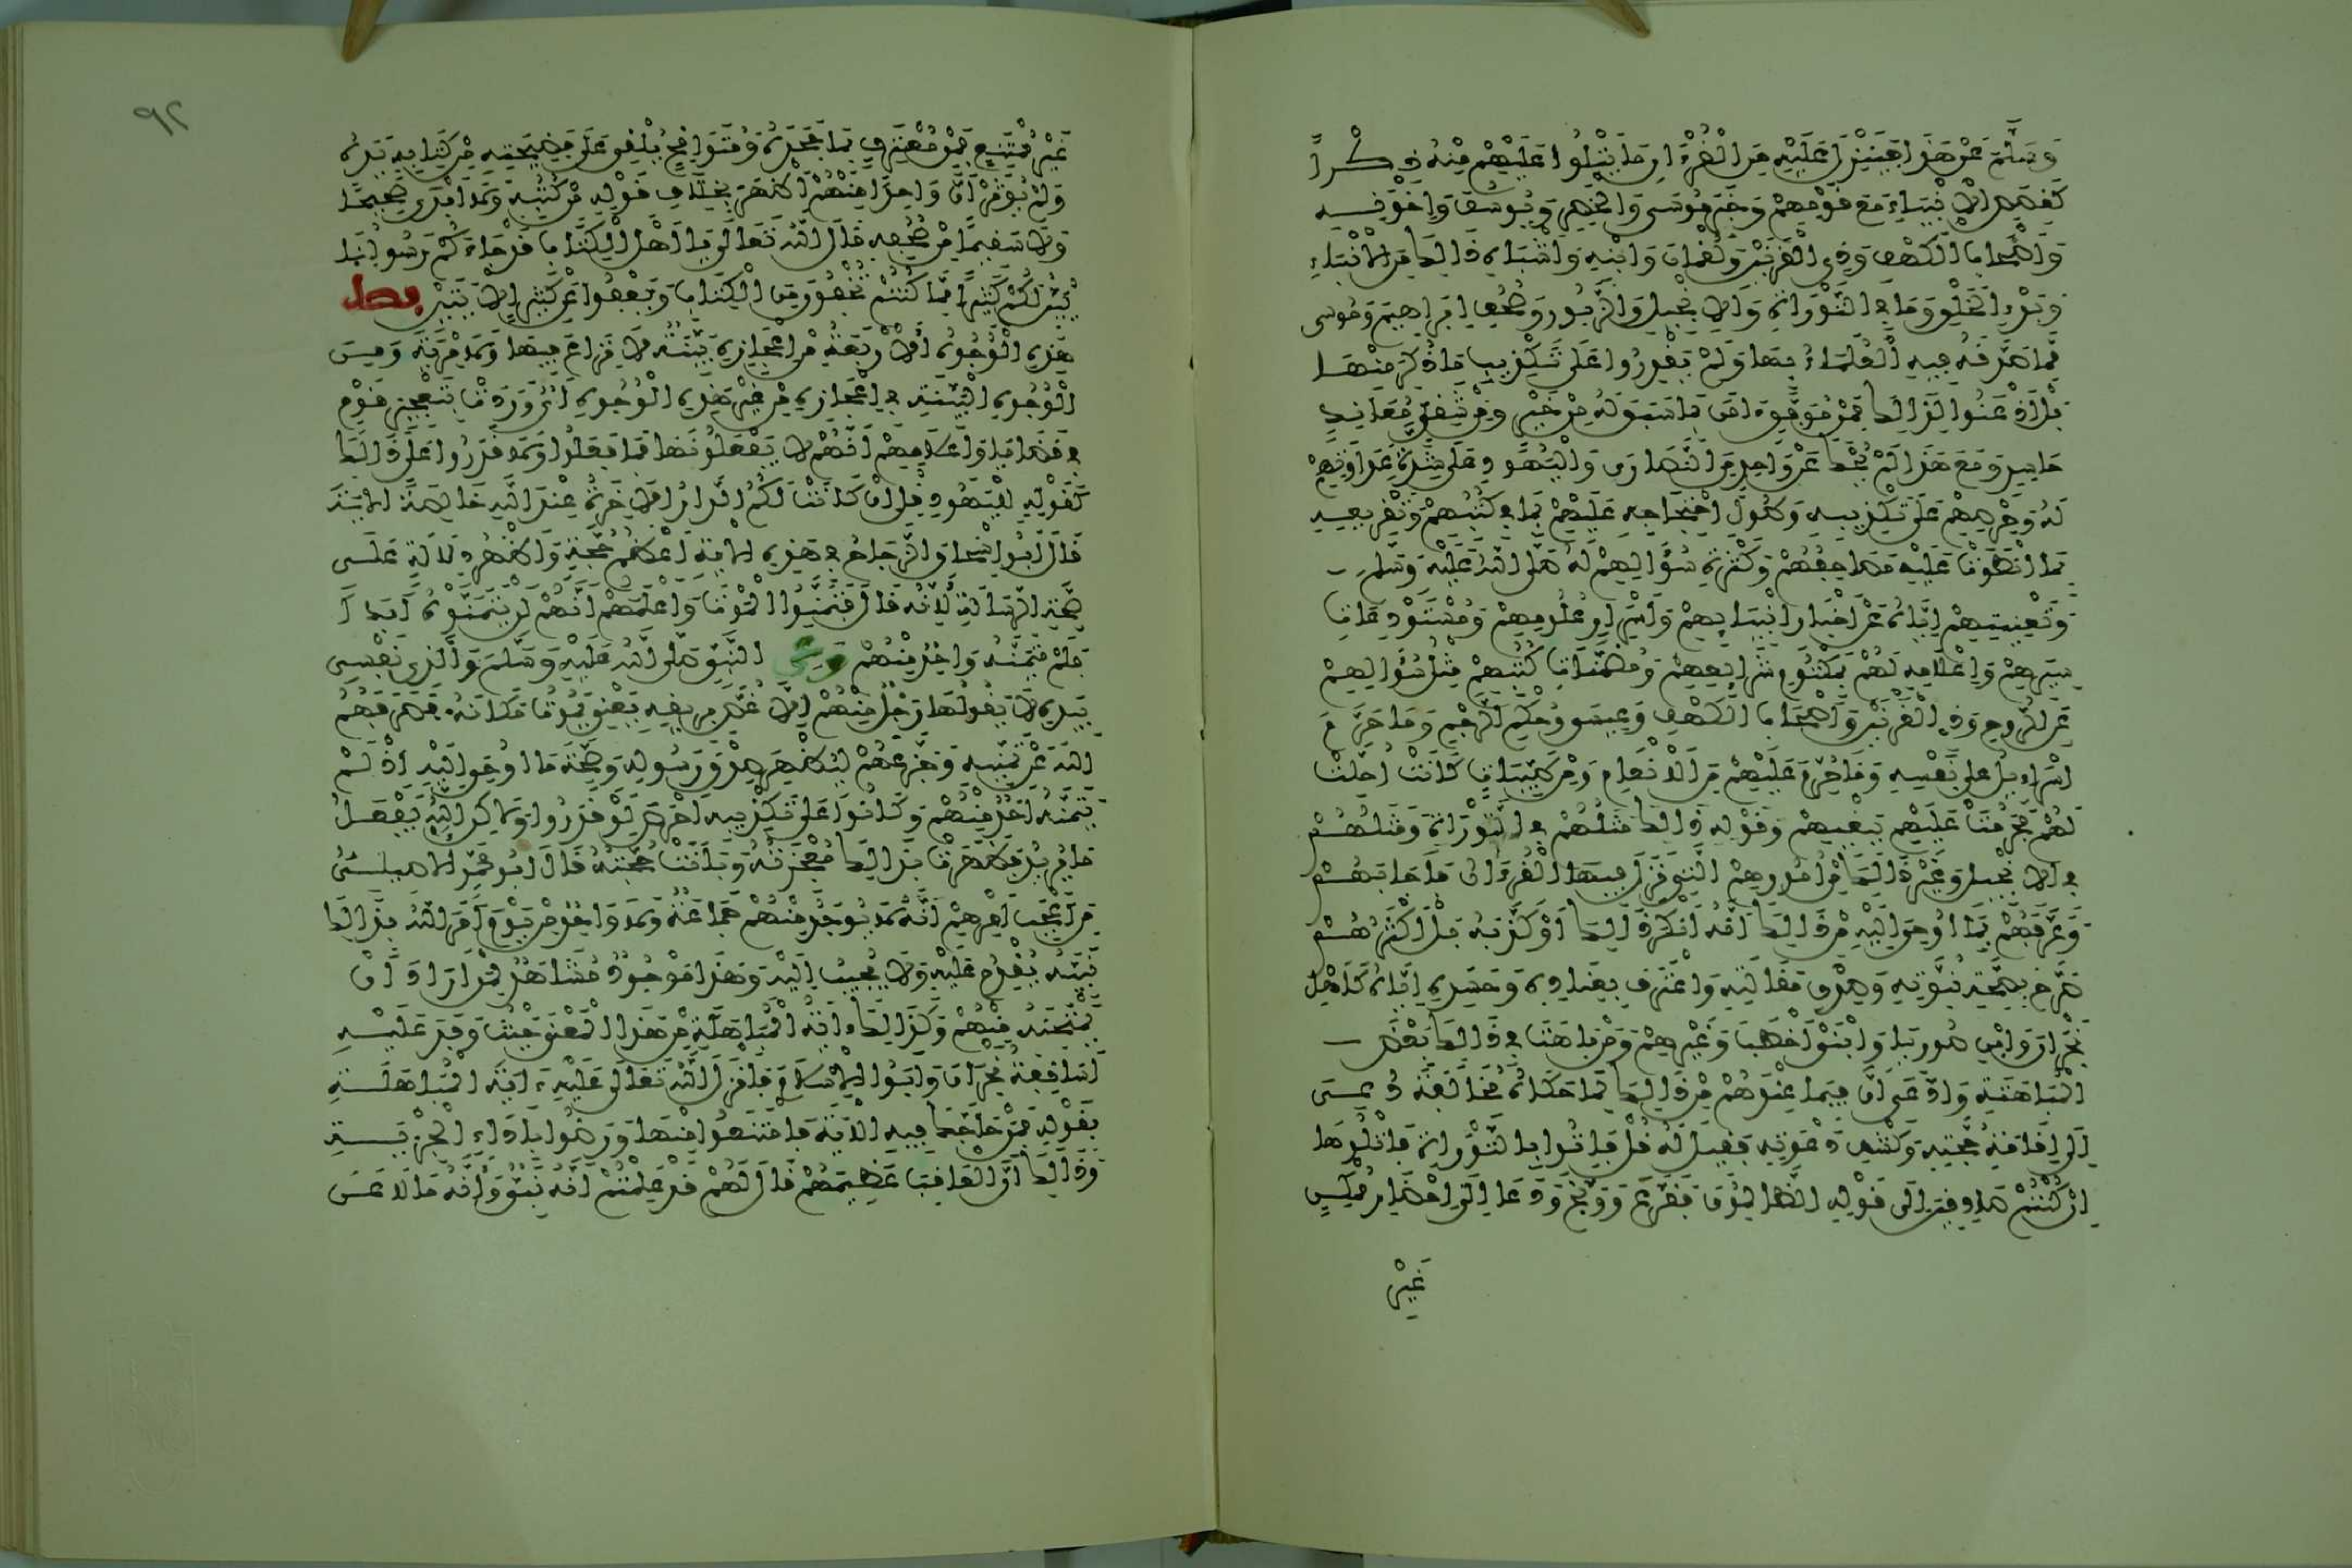 وَسَلَّمَ عَنْ هَذَا فَيَنْزِلُ عَلَيْهِ مِنَ الْقُرْءَانِ مَا يَتْلُوا عَلَيْهِمْ مِنْهُ ذِكْراً
كَقَصَصِ الْأَنْبِيَاءِ مَعَ قَوْمِهِمْ وَخَبَرِ مُوسَى وَالْخَضِرِ وَيُوسُفَ وَإِخْوَتِهِ
وَأَصْحَابِ الْكَهْفِ وَذِي الْقَرْنَيْنِ وَلُقْمَانَ وَابْنِهِ وَأَشْبَاهِ ذَالِكَ مِنَ الْأَنْبَاءِ
وَبَدْءِ الْخَلْقِ وَمَا فِي التَّوْرَاةِ وَالْإِنْجِيلِ وَالزَّبُورِ وَصُحُفِ إِبْرَاهِيمَ وَمُوسَى
مِمَّا صَدَّقَهُ فِيهِ الْعُلَمَاءُ بِهَا وَلَمْ يَقْدِرُوا عَلَى تَكْذِيبِ مَا ذُكِرَ مِنْهَا
بَلْ أَذْعَنُوا لِذَالِكَ فَمِنْ مُوَفَّقٍ ءَامَنَ بِمَا سَبَقَ لَهُ مِنْ خَيْرٍ وَمِنْ شَقِيٍّ مُعَانِدٍ
حَاسِدٍ وَمَعَ هَذَا لَمْ يُحْكَ عَنْ وَاحِدٍ مِنَ النَّصَارَى وَالْيَهُودِ عَلَى شِدَّةِ عَدَاوَتِهِمْ
لَهُ وَحِرْصِهِمْ عَلَى تَكْذِيبِهِ وَطُولِ احْتِجَاجِهِ عَلَيْهِمْ بِمَا فِي كُتُبِهِمْ وَتَقْرِيعِهِ
بِمَا انْطَوَتْ عَلَيْهِ مَصَاحِفُهُمْ وَكَثْرَةِ سُؤَالِهِمْ لَهُ صَلَّى اللَّهُ عَلَيْهِ وَسَلَّمَ
وَتَعْنِيتِهِمْ إِيَّاهُ عَنْ أَخْبَارِ أَنْبِيَائِهِمْ وَأَسْرَارِ عُلُومِهِمْ وَمُسْتَوْدَعَاتِ
سِيَرِهِمْ وَإِعْلَامِهِ لَهُمْ بِمَكْتُومِ شَرَائِعِهِمْ وَمُضَمَّنَاتِ كُتُبِهِمْ مِثْلُ سُؤَالِهِمْ
عَنِ الرُّوحِ وَذِي الْقَرْنَيْنِ وَأَصْحَابِ الْكَهْفِ وَعِيسَى وَحُكْمِ الرَّجْمِ وَمَا حَرَّمَ
إِسْرَاءِيلُ عَلَى نَفْسِهِ وَمَا حُرِّمَ عَلَيْهِمْ مِنَ الْأَنْعَامِ وَمِنْ طَيِّبَاتٍ كَانَتْ أُحِلَّتْ
لَهُمْ فَحُرِّمَتْ عَلَيْهِمْ بِبَغْيِهِمْ وَقَوْلِهِ ذَالِكَ مَثَلُهُمْ فِي التَّوْرَاةِ وَمَثَلُهُمْ
فِي الْإِنْجِيلِ وَغَيْرِ ذَالِكَ مِنْ أُمُورِهِمْ الَّتِي نَزَلَ فِيهَا الْقُرْءَانُ فَأَجَابَهُمْ
وَعَرَّفَهُمْ بِمَا أُوحِيَ إِلَيْهِ مِنْ ذَالِكَ أَنَّهُ أَنْكَرَ ذَالِكَ أَوْ كَذَّبَهُ بَلْ أَكْثَرُهُمْ
صَرَّحَ بِصِحَّةِ نُبُوَّتِهِ وَصِدْقِ مَقَالَتِهِ وَاعْتَرَفَ بِعِنَادِهِ وَحَسَدِهِ إِيَّاهُ كَأَهْلِ
نَجْرَانَ وَابْنِ صُورِيَا وَابْنَيْ أَخْطَبَ وَغَيْرِهِمْ وَمَنْ بَاهَتَ فِي ذَالِكَ بَعْضَ
الْمُبَاهَتَةِ وَادَّعَى أَنَّ فِيمَا عِنْدَهُمْ مِنْ ذَالِكَ لِمَا حَكَاهُ مُخَالَفَةً دُعِيَ
إِلَى إِقَامَةِ حُجَّتِهِ وَكَشْفِ دَعْوَتِهِ فَقِيلَ لَهُ قُلْ فَاتُوا بِالتَّوْرَاةِ فَاتْلُوهَا
إِنْ كُنْتُمْ صَادِقِينَ إِلَى قَوْلِهِ الظَّالِمُونَ فَقَرَّعَ وَوَبَّخَ وَدَعَا إِلَى إِحْضَارِ مُمْكِنٍ
غَيْرِ
٩٢
غَيْرِ مُمْتَنِعٍ فَمِنْ مُعْتَرِفٍ بِمَا جَحَدَهُ وَمُتَوَاقِحٍ يُلْقِي عَلَى فَضِيحَتِهِ مِنْ كِتَابِهِ يَدَهُ
وَلَمْ يُؤْثَرْ أَنَّ وَاحِدًا مِنْهُمْ أَظْهَرَ خِلَافَ قَوْلِهِ مِنْ كُتُبِهِ وَلَا أَبْدَى صَحِيحًا
وَلَا سَقِيمًا مِنْ صُحُفِهِ قَالَ اللَّهُ تَعَالَى يَا أَهْلَ الْكِتَابِ قَدْ جَاءَكُمْ رَسُولُنَا
يُبَيِّنُ لَكُمْ كَثِيرًا مِمَّا كُنْتُمْ تُخْفُونَ مِنَ الْكِتَابِ وَيَعْفُوا عَنْ كَثِيرٍ الْآيَتَيْنِ فصل
هَذِهِ الْوُجُوهُ الْأَرْبَعَةُ مِنْ إِعْجَازِهِ بَيِّنَةٌ لَا نِزَاعَ فِيهَا وَلَا مِرْيَةَ وَمِنَ
الْوُجُوهِ الْبَيِّنَةِ فِي إِعْجَازِهِ مِنْ غَيْرِ هَذِهِ الْوُجُوهِ ءَايٌ وَرَدَتْ بِتَعْجِيزِ قَوْمٍ
فِي قَضَايَا وَإِعْلَامِهِمْ أَنَّهُمْ لَا يَفْعَلُونَهَا فَمَا فَعَلُوا وَلَا قَدَرُوا عَلَى ذَالِكَ
كَقَوْلِهِ لِلْيَهُودِ قُلْ إِنْ كَانَتْ لَكُمُ الدَّارُ الْآخِرَةُ عِنْدَ اللَّهِ خَالِصَةً الْآيَةَ
قَالَ أَبُو إِسْحَاقَ الزَّجَّاجُ فِي هَذِهِ الْآيَةِ أَعْظَمُ حُجَّةٍ وَأَظْهَرُ دَلَالَةٍ عَلَى
صِحَّةِ الرِّسَالَةِ لِأَنَّهُ قَالَ فَتَمَنَّوُا الْمَوْتَ وَأَعْلَمَهُمْ أَنَّهُمْ لَنْ يَتَمَنَّوْهُ أَبَدًا
فَلَمْ يَتَمَنَّهُ وَاحِدٌ مِنْهُمْ وَعَنِ النَّبِيِّ صَلَّى اللَّهُ عَلَيْهِ وَسَلَّمَ وَالَّذِي نَفْسِي
بِيَدِهِ لَا يَقُولُهَا رَجُلٌ مِنْهُمْ إِلَّا غُصَّ بِرِيقِهِ يَعْنِي يَمُوتُ مَكَانَهُ فَصَرَفَهُمُ
اللَّهُ عَنْ تَمَنِّيهِ وَجَزَّعَهُمْ لِيُظْهِرَ صِدْقَ رَسُولِهِ وَصِحَّةَ مَا أُوحِيَ إِلَيْهِ إِذْ لَمْ
يَتَمَنَّهُ أَحَدٌ مِنْهُمْ وَكَانُوا عَلَى تَكْذِيبِهِ أَحْرَصَ لَوْ قَدَرُوا وَلَاكِنَّ اللَّهَ يَفْعَلُ
مَا يُرِيدُ فَظَهَرَتْ بِذَالِكَ مُعْجِزَتُهُ وَبَانَتْ حُجَّتُهُ قَالَ أَبُو مُحَمَّدٍ الْأَصِيلِيُّ
مِنْ أَعْجَبِ أَمْرِهِمْ أَنَّهُ لَا يُوجَدُ مِنْهُمْ جَمَاعَةٌ وَلَا وَاحِدٌ مِنْ يَوْمِ أَمَرَ اللَّهُ بِذَالِكَ
نَبِيَّهُ يُقْدِمُ عَلَيْهِ وَلَا يُجِيبُ إِلَيْهِ وَهَذَا مَوْجُودٌ مُشَاهَدٌ لِمَنْ أَرَادَ أَنْ
يَمْتَحِنَهُ مِنْهُمْ وَكَذَالِكَ ءَايَةُ الْمُبَاهَلَةِ مِنْ هَذَا الْمَعْنَى حَيْثُ وَفَدَ عَلَيْهِ
أَسَاقِفَةُ نَجْرَانَ وَأَبَوُا الْإِسْلَامَ فَأَنْزَلَ اللَّهُ تَعَالَى عَلَيْهِ ءَايَةَ الْمُبَاهَلَةِ
بِقَوْلِهِ فَمَنْ حَاجَّكَ فِيهِ الْآيَةَ فَامْتَنَعُوا مِنْهَا وَرَضُوا بِأَدَاءِ الْجِزْيَةِ
وَذَالِكَ أَنَّ الْعَاقِبَ عَظِيمَهُمْ قَالَ لَهُمْ قَدْ عَلِمْتُمْ أَنَّهُ نَبِيٌّ وَأَنَّهُ مَا لَاعَنَ